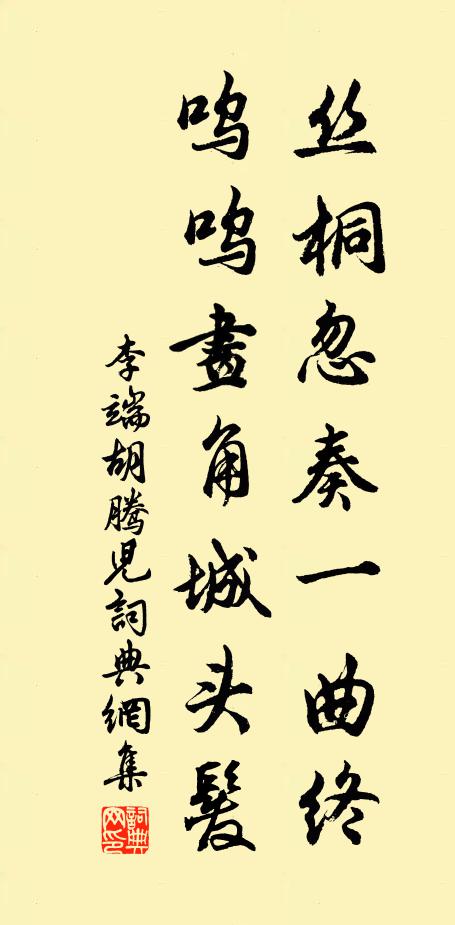 丝桐忽奏一曲终
呜呜畫角城头髮
李端胡腾児詞典網集
詞典网印